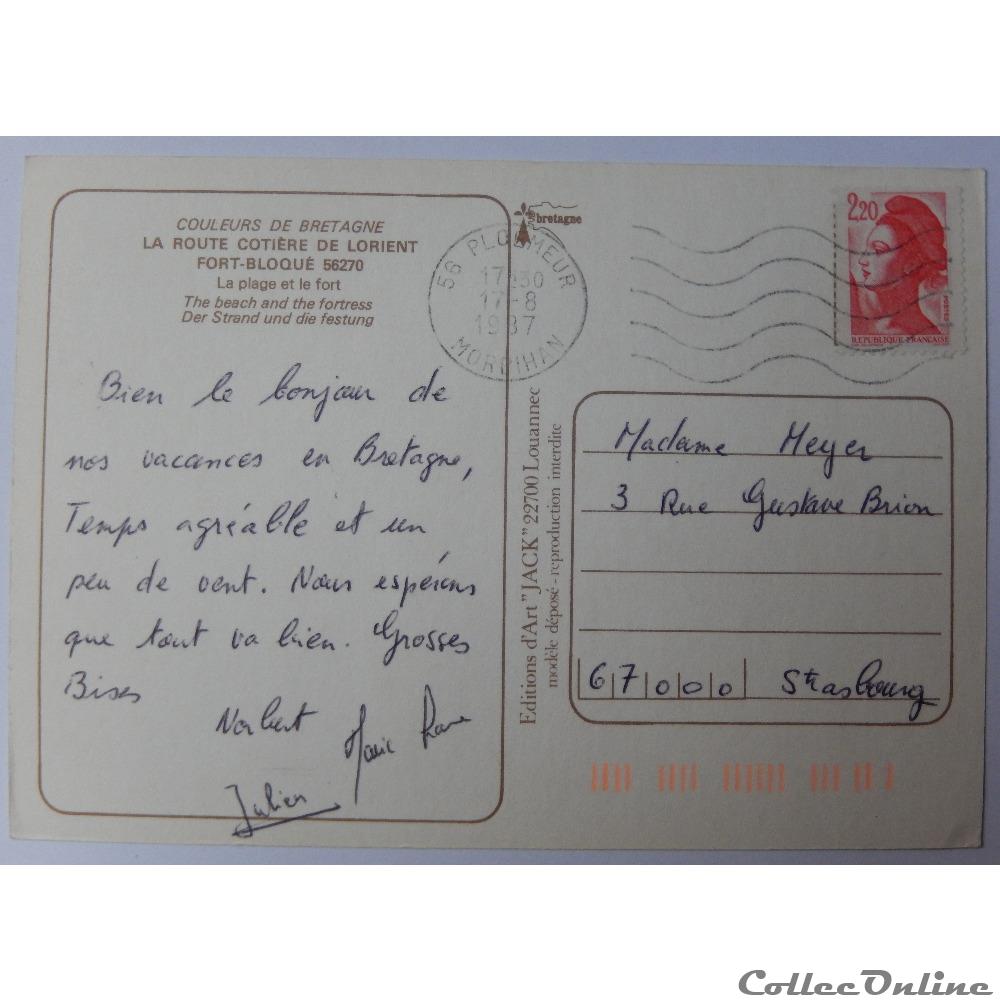 COULEURS DE BRETAGNE
LA ROUTE COTIÈRE DE LORIENT
FORT-BLOQUÉ 56270
La plage et le fort
The beach and the fortress
Der Strand und die festung
Bien le bonjour de
nos vacances en Bretagne,
Temps agréable et un
peu de vent. Nous espérons
que tout va bien. Grosses
Bises
Norbert
Marie
Julien
Editions d'Art "JACK" 22700 Louannec
modèle déposé - reproduction interdite
bretagne
56 PLOEMEUR
17 30
17-8
1987
MORBIHAN
2,20
POSTES
REPUBLIQUE FRANÇAISE
Madame Meyer
3 Rue Gustave Brion
67000 Strasbourg
CollecOnline